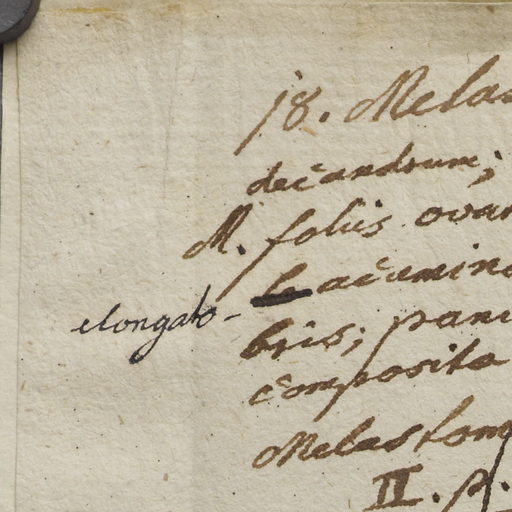 18. Melas
decandrum;
M. foliis ovat
elongato-acumina
bris; pani
composita
Melastom
II. p.